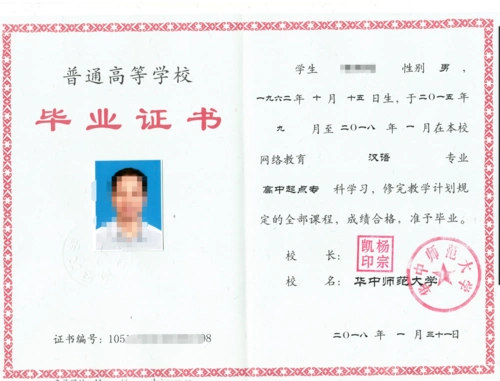 普通高等学校
毕业证书
证书编号：105 98
学生 性别 男，
一九六二年 十月 十五日生，于二〇一五年
九 月至二〇一八年 一月在本校
网络教育 汉语 专业
高中起点专 科学习，修完教学计划规
定的全部课程，成绩合格，准予毕业。
校 长：
杨宗凯印
校 名：华中师范大学
华中师范大学
二〇一八年 一月 三十一日